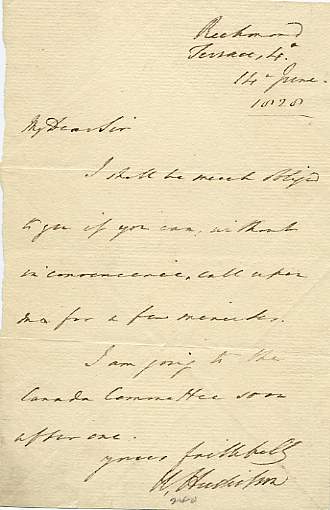 Richmond
Terrace, 4.
14th June.
1828
My Dear Sir
I shall be much obliged
to you if you can, without
inconvenience, call upon
me for a few minutes.
I am going to the
Canada Committee soon
after one.
yours faithfully
W. Huskisson